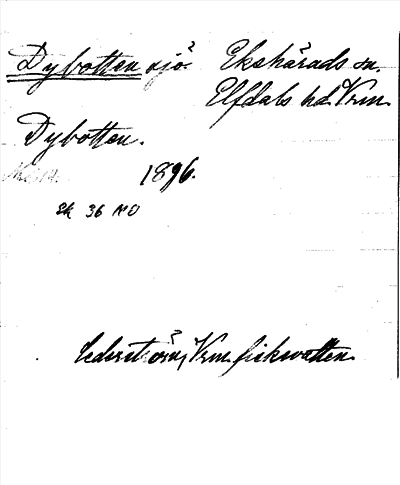 Dybotten sjö. Ekshärads sn.
Elfdals hd. Vrm.
Dybotten.
1896.
Ek 36 NO
Cederström, Vrm. fiskvatten.